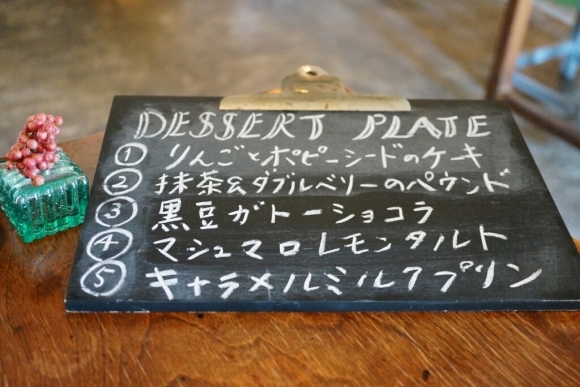 DESSERT PLATE
① りんごとポピーシードのケーキ
② 抹茶&ダブルベリーのパウンド
③ 黒豆ガトーショコラ
④ マシュマロレモンタルト
⑤ キャラメルミルクプリン